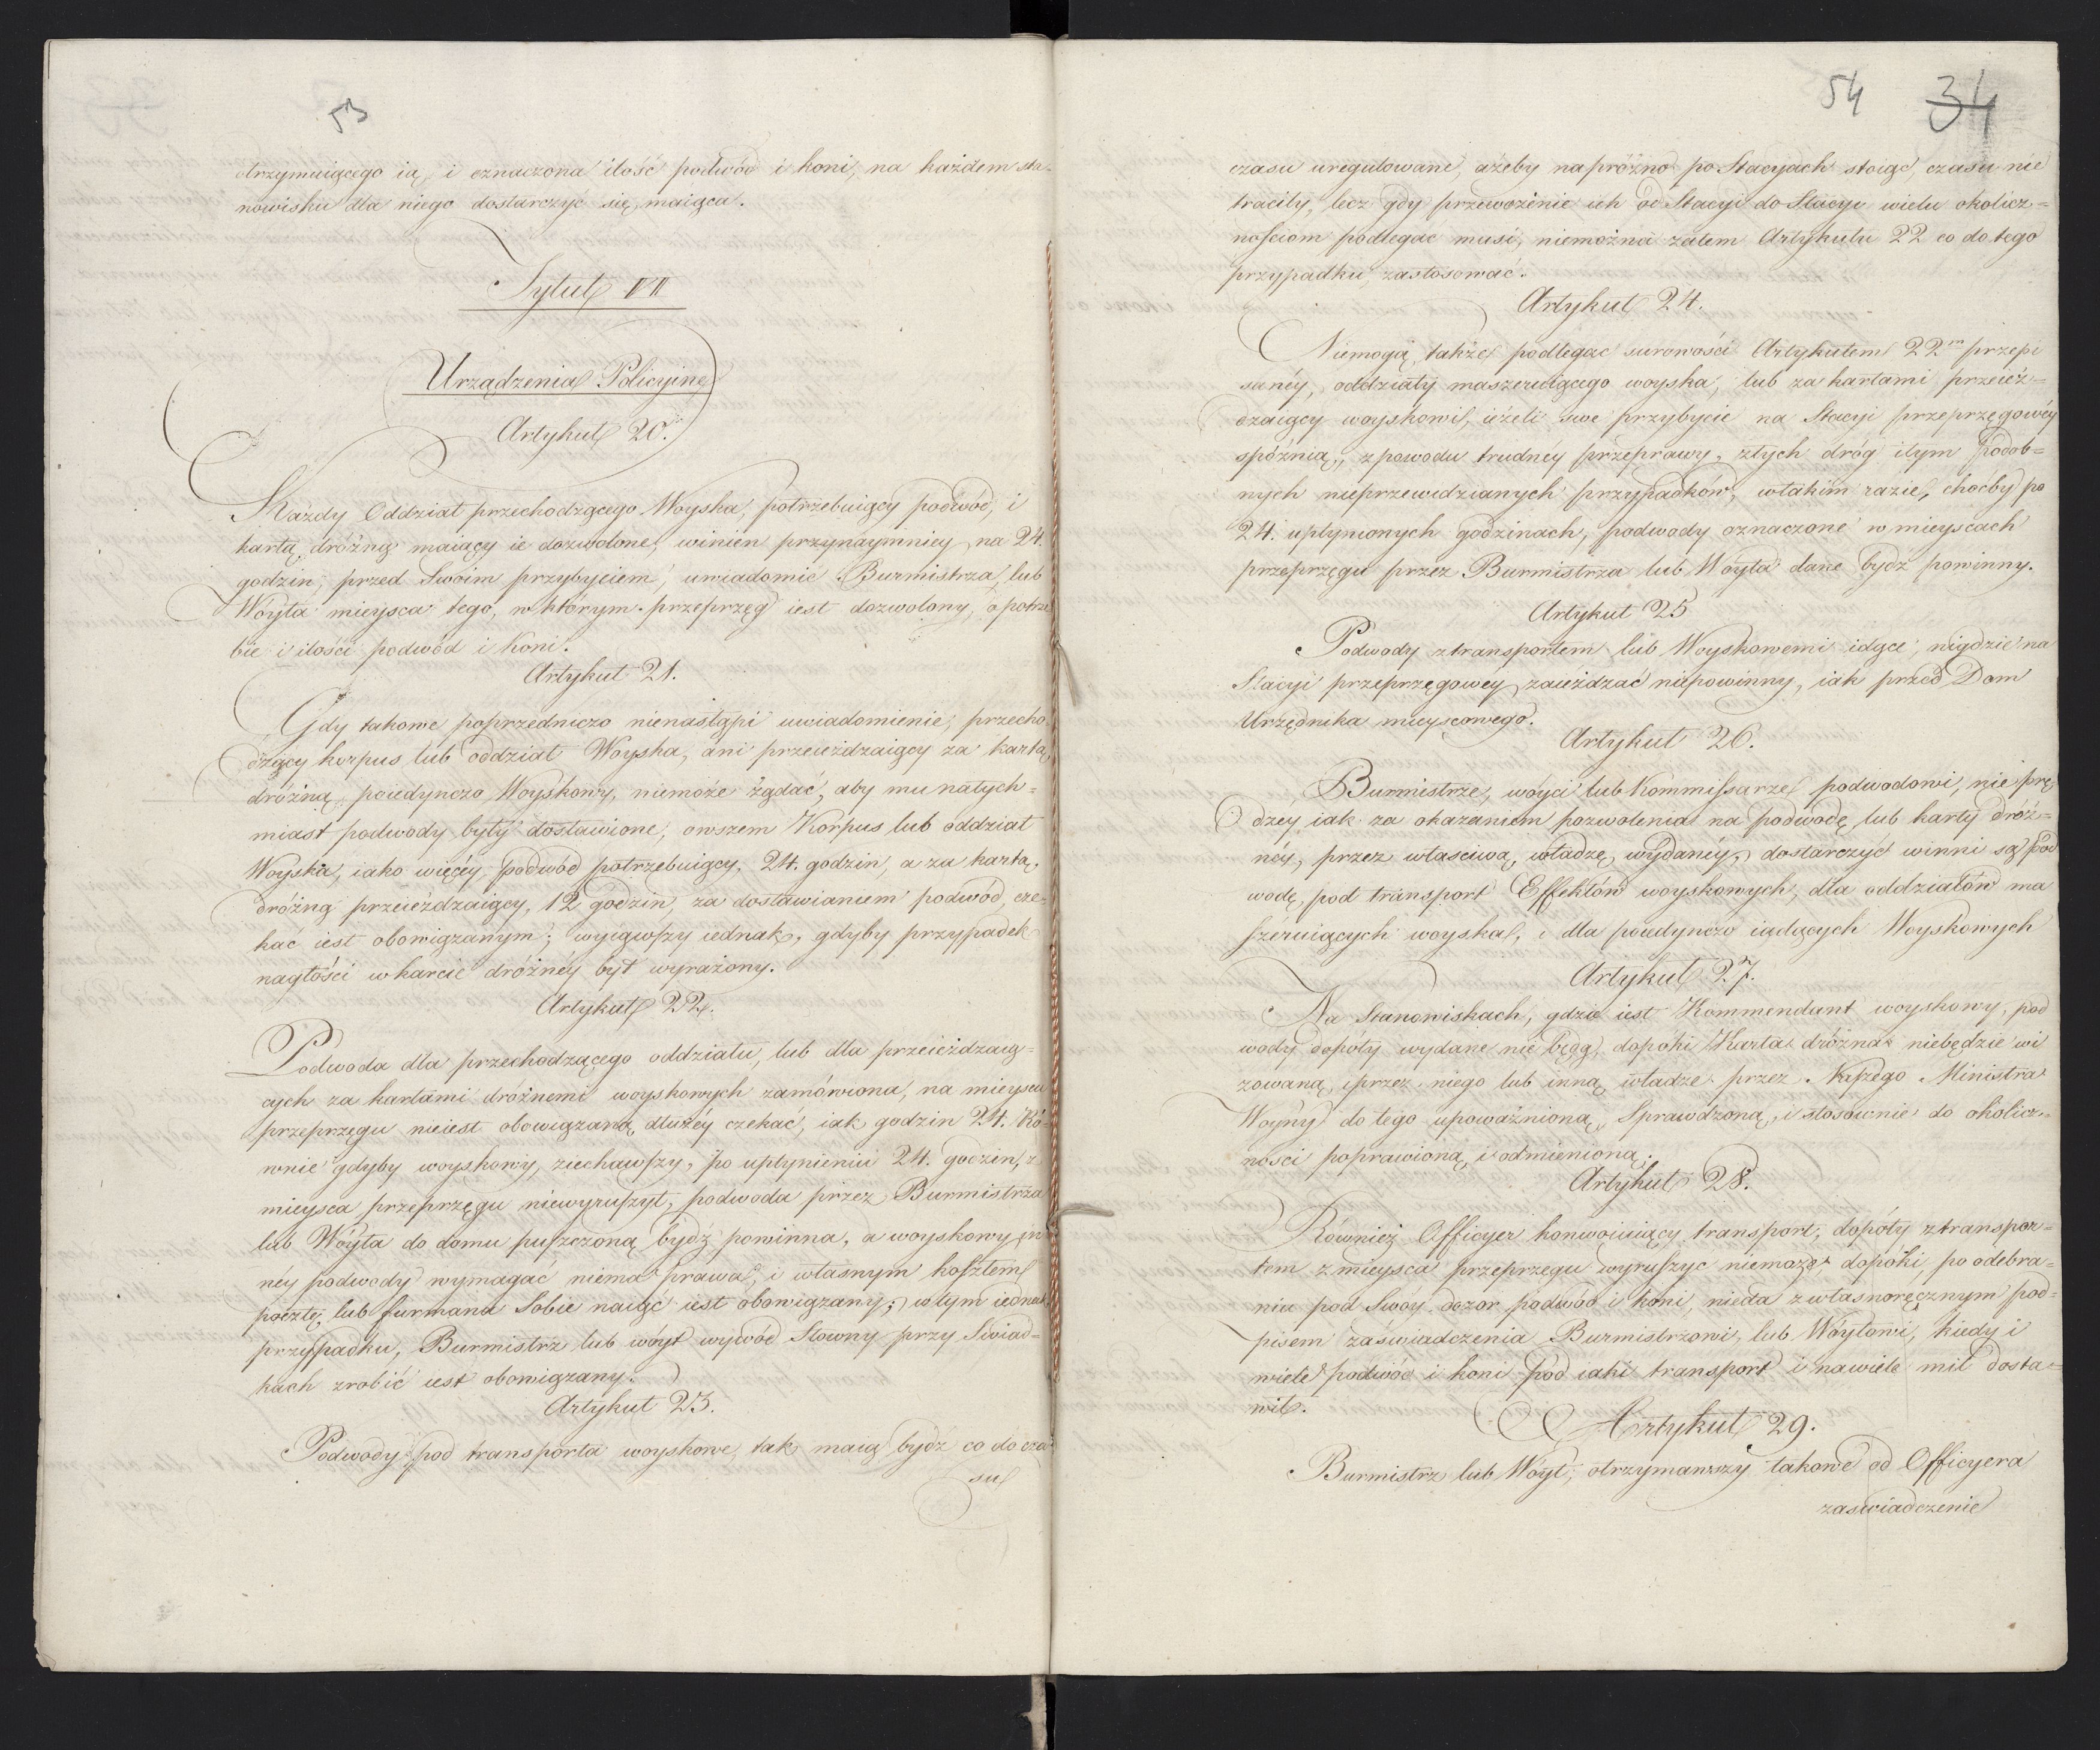 53
otrzymuiącego ią, i oznaczona ilość podwód i koni, na każdem sta-
nowisku dla niego dostarczyć się maiąca.
Tytuł VII
Urządzenia Policyine
Artykuł 20.
Każdy Oddział przechodzącego Woyska, potrzebuiący podwód, i
kartą dróżną maiący ie dozwolone, winien przynaymniey na 24.
godzin, przed Swoim przybyciem, uwiadomić Burmistrza lub
Woyta mieysca tego, w którym przeprzęg iest dozwolony, o potrze
bie i ilości podwód i Koni.
Artykuł 21.
Gdy takowe poprzedniczo nienastąpi uwiadomienie, przecho
dzący korpus lub oddział Woyska, ani przeieżdzaiący za kartą
dróżną poiedynczo Woyskowy, niemoże żądać, aby mu natych=
miast podwody były dostawione, owszem Korpus lub oddział
Woyska, iako więcéy podwód potrzebuiący, 24. godzin, a za kartą
dróżną przeieżdzaiący, 12 godzin, za dostawianiem podwód, cze-
kać iest obowiązanym; wyiąwszy iednak, gdyby przypadek
nagłości w karcie dróżnéy był wyrażony.
Artykuł 22.
Podwoda dla przechodzącego oddziału, lub dla przeieżdzaią=
cych za kartami dróżnemi woyskowych zamówiona, na mieyscu
przeprzęgu nieiest obowiązaną dłużéy czekać, iak godzin 24. Ró-
wnie gdyby woyskowy, ziechawszy, po upłynieniu 24. godzin, z
mieysca przeprzęgu niewyruszył, podwoda przez Burmistrza
lub Wóyta do domu puszczoną bydź powinna, a woyskowy in
néy podwody wymagać niema prawa, i własnym kosztem
pocztę, lub furmana Sobie naiąć iest obowiązany; w tym iednak
przypadku, Burmistrz lub wóyt wywód Słowny przy Świad=
kach zrobić iest obowiązany.
Artykuł 23.
Podwody pod transporta woyskowe, tak maią bydź co do cza
su
54 34
czasu uregulowane, ażeby napróżno po Stacyach stoiąc, czasu nie
traciły, lecz gdy przewożenie ich od Stacyi do Stacyi wielu okolicz=
nościom podlegać musi, niemożna zatem Artykułu 22 co do tego
przypadku zastosować.
Artykuł 24.
Niemogą także podlegać surowości Artykułem 22m przepi
sanéy, oddziały maszeruiącego woyska, lub za kartami przeież=
dzaiący woyskowi, ieżeli swe przybycie na Stacyi przeprzęgowéy
spóźnią, z powodu trudnéy przeprawy, złych dróg i tym podob=
nych nieprzewidzianych przypadków, w takim razie, choćby po
24. upłynionych godzinach, podwody oznaczone w mieyscach
przeprzęgu przez Burmistrza lub Woyta dane bydź powinny.
Artykuł 25
Podwody z transportem lub Woyskowemi idące, nigdzie na
Stacyi przeprzęgowey zaieżdzać niepowinny, iak przed Dom
Urzędnika mieyscowego.
Artykuł 26.
Burmistrze, wóyci lub Kommissarze podwodowi, nie prę
dzey iak za okazaniem pozwolenia na podwodę lub karty dróż=
néy, przez właściwą władzę wydanéy, dostarczyć winni są pod
wodę, pod transport Effektów woyskowych, dla oddziałów ma
szeruiących woyska, i dla poiedynczo iadących Woyskowych
Artykuł 27.
Na Stanowiskach, gdzie iest Kommendant woyskowy, pod
wody dopóty wydane nie będą, dopóki Karta dróżna niebędzie wi
zowaną, i przez niego lub inną władze przez Naszego Ministra
Woyny do tego upoważnioną, Sprawdzoną, i stosownie do okolicz=
ności poprawioną, i odmienioną.
Artykuł 28.
Również Officyer konwoiuiący transport, dopóty z transpor=
tem z mieysca przeprzęgu wyruszyc niemoże dopóki, po odebra=
niu pod Swóy dozor podwód i koni, nieda z własnoręcznym pod=
pisem zaświadczenia Burmistrzowi, lub Wóytowi, kiedy i
wiele podwód i koni pod iaki transport i na wiele mil dosta=
wił.
Artykuł 29.
Burmistrz lub Wóyt, otrzymawszy takowe od Officyera
zaświadczenie